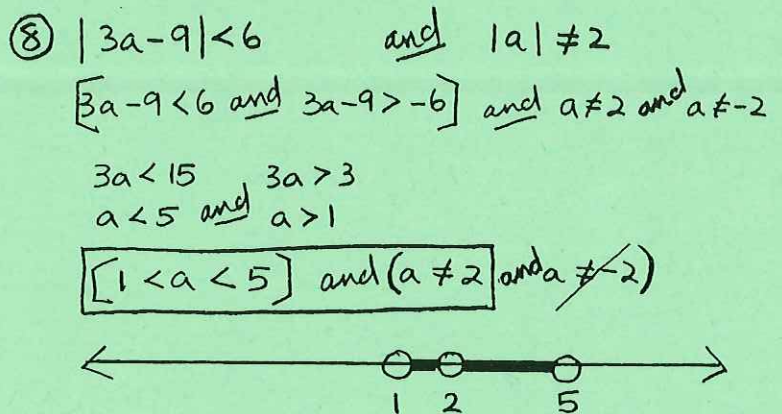 ⑧ |3a-9|<6 and |a|≠2
[3a-9<6 and 3a-9>-6] and a≠2 and a≠-2
3a<15 3a>3
a<5 and a>1
[1<a<5] and (a≠2 and a≠-2)
1 2 5